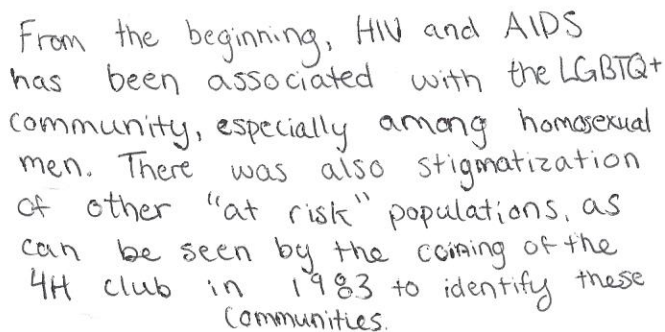 From the beginning, HIV and AIDS
has been associated with the LGBTQ+
community, especially among homosexual
men. There was also stigmatization
of other "at risk" populations, as
can be seen by the coining of the
4H club in 1983 to identify these
communities.